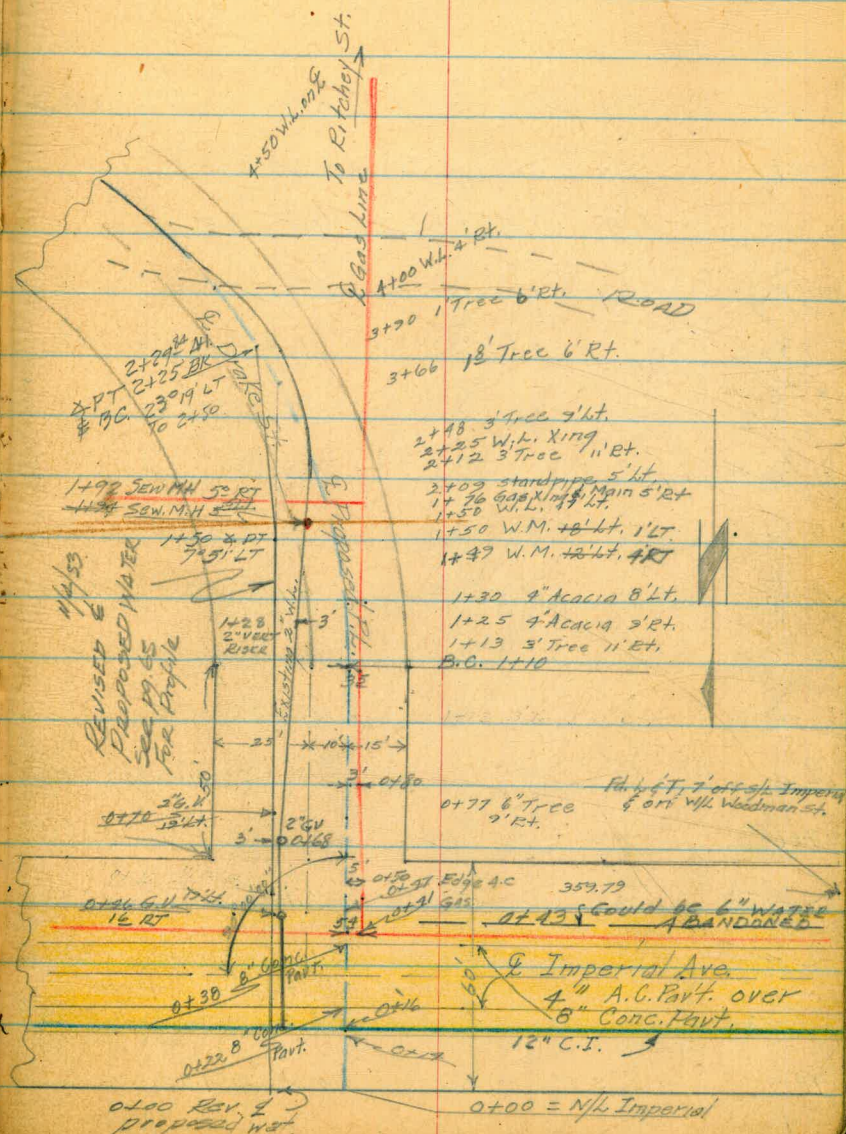 4+50 W.L. on ℄
To Ritchey St.
℄ Gas Line
4+00 W.L. 4' Rt.
3+90 1' Tree 6' Rt.
ROAD
3+66 18" Tree 6' Rt.
℄ Drake St.
2+29.84 AH.
∡ PT 2+25 BK
& B.C. 23°19' LT
TO 2+50
2+48 3' Tree 9' Lt.
2+25 W.L. Xing
2+12 3' Tree 11' Rt.
2+09 standpipe 5' Lt.
1+76 Gas Xing & Main 5' Rt
1+50 W.L. 17' Lt.
1+50 W.M. 18' Lt. 1' LT
1+49 W.M. 12' Lt. 4' RT
1+92 SEW MH 5° RT
1+94 Sew. M.H 5° Lt
1+50 ∡ PT
7°51' LT
1+30 4" Acacia 8' Lt.
1+25 4" Acacia 9' Rt.
1+13 3' Tree 11' Rt.
B.C. 1+10
11/4/53
REVISED ℄
PROPOSED WATER
See pg. 65
FOR Profile
1+28
2" VERT
RISER
3'
Existing 2" W.L.
℄ Proposed
3'
25'
10'
15'
3'
0+80
50'
2" G.V.
0+70 12' Lt.
2" GV
0+68
3'
0+77 6" Tree
9' Rt.
Fd. L & T, 7' off S/L Imperial
& on W/L Woodman St.
5'
0+50
0+47 Edge A.C
0+41 Gas
359.79
0+46 G.V. 17' Lt.
16 RT
54
0+43 Could be 6" WATER
ABANDONED
8" Conc.
Pavt.
0+38
60'
℄ Imperial Ave.
4" A.C. Pav't. over
8" Conc. Pavt.
0+16
12" C.I.
0+22 8" Conc.
Pavt.
0+14
0+00 Rev. ℄
proposed wat
0+00 = N/L Imperial